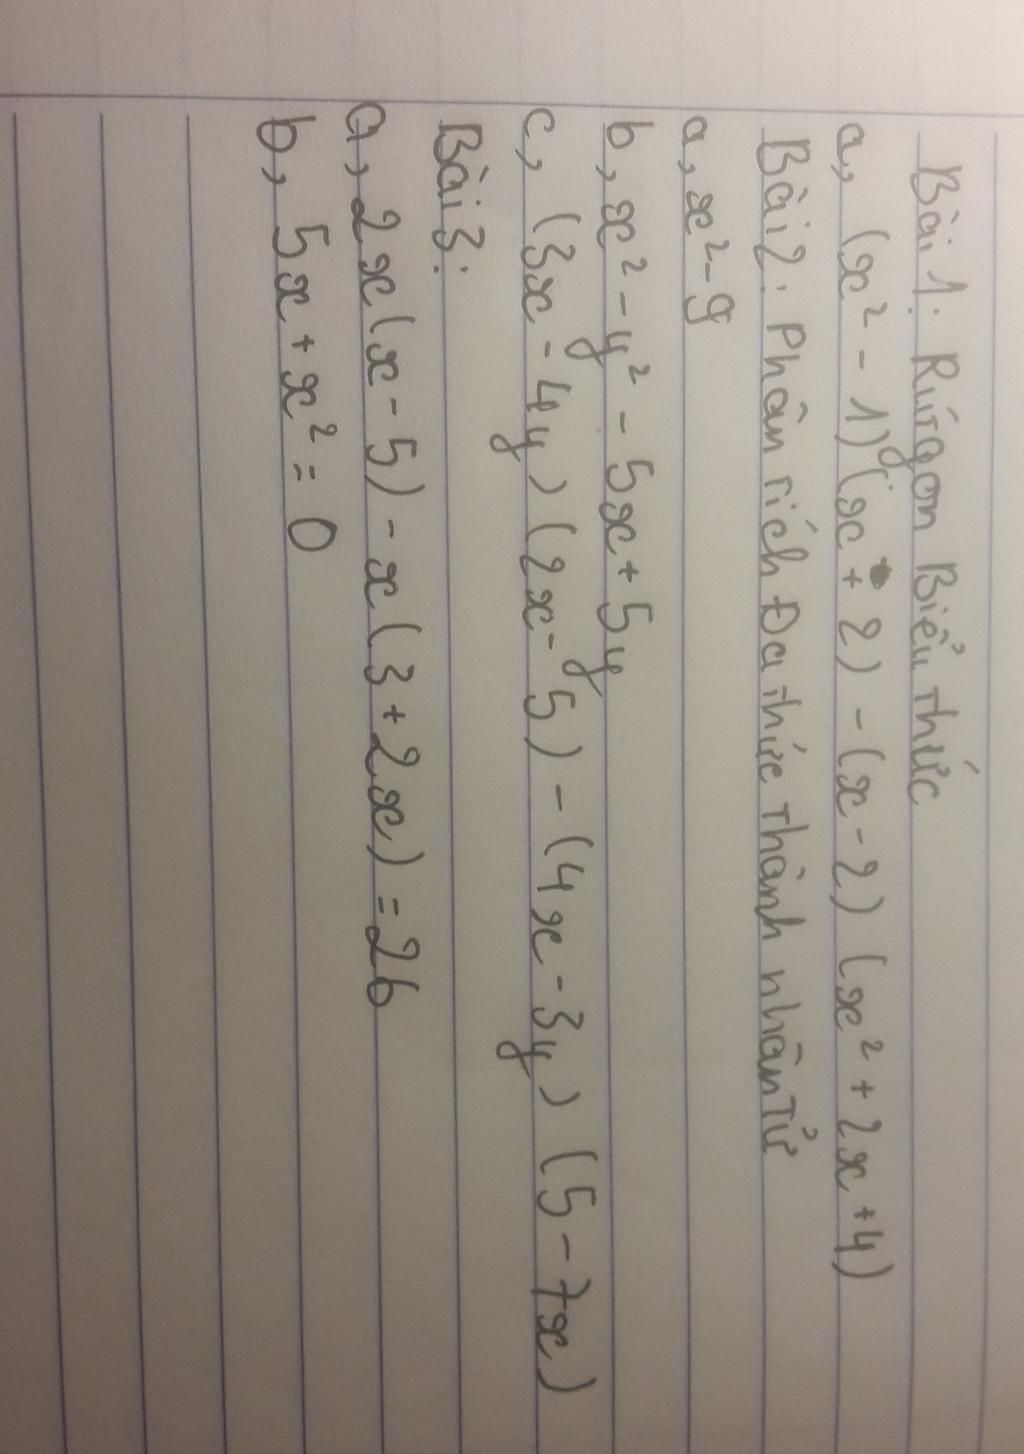 Bài 1: Rút gọn Biểu thức
a, (x² - 1)(x + 2) - (x - 2) (x² + 2x + 4)
Bài 2: Phân tích Đa thức thành nhân Tử
a, x² - 9
b, x² - y² - 5x + 5y
c, (3x - 4y) (2x - 5) - (4x - 3y) (5 - 7x)
Bài 3:
a, 2x(x - 5) - x(3 + 2x) = 26
b, 5x + x² = 0